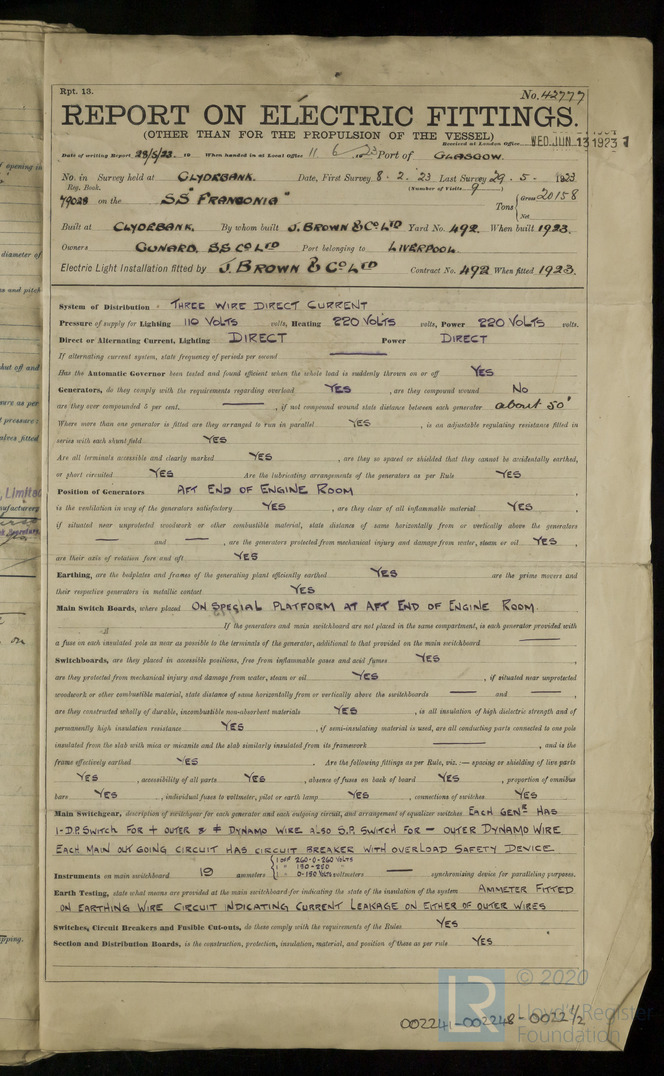 Rpt. 13.
No. 42777
REPORT ON ELECTRIC FITTINGS.
(OTHER THAN FOR THE PROPULSION OF THE VESSEL)
Received at London Office WED. JUN. 13 1923
Date of writing Report 29/5/23. 19 When handed in at Local Office 11 6 1923 Port of GLASGOW.
No. in Survey held at CLYDEBANK. Date, First Survey 8. 2. 23 Last Survey 29. 5 - 1923
Reg. Book. (Number of Visits 9)
79028 on the SS "FRANCONIA" Tons { Gross 20158
Net
Built at CLYDEBANK. By whom built J. BROWN & Co LTD Yard No. 492. When built 1923.
Owners CUNARD. SS Co LTD Port belonging to LIVERPOOL.
Electric Light Installation fitted by J. BROWN & Co LTD Contract No. 492 When fitted 1923.
System of Distribution THREE WIRE DIRECT CURRENT
Pressure of supply for Lighting 110 VOLTS volts, Heating 220 VOLTS volts, Power 220 VOLTS volts.
Direct or Alternating Current, Lighting DIRECT Power DIRECT
If alternating current system, state frequency of periods per second
Has the Automatic Governor been tested and found efficient when the whole load is suddenly thrown on or off YES
Generators, do they comply with the requirements regarding overload YES, are they compound wound NO
are they over compounded 5 per cent. —, if not compound wound state distance between each generator about 50"
Where more than one generator is fitted are they arranged to run in parallel YES, is an adjustable regulating resistance fitted in
series with each shunt field YES
Are all terminals accessible and clearly marked YES, are they so spaced or shielded that they cannot be accidentally earthed,
or short circuited YES Are the lubricating arrangements of the generators as per Rule YES
Position of Generators AFT END OF ENGINE ROOM,
is the ventilation in way of the generators satisfactory YES, are they clear of all inflammable material YES,
if situated near unprotected woodwork or other combustible material, state distance of same horizontally from or vertically above the generators
— and —, are the generators protected from mechanical injury and damage from water, steam or oil YES,
are their axis of rotation fore and aft YES
Earthing, are the bedplates and frames of the generating plant efficiently earthed YES are the prime movers and
their respective generators in metallic contact YES
Main Switch Boards, where placed ON SPECIAL PLATFORM AT AFT END OF ENGINE ROOM.
If the generators and main switchboard are not placed in the same compartment, is each generator provided with
a fuse on each insulated pole as near as possible to the terminals of the generator, additional to that provided on the main switchboard —
Switchboards, are they placed in accessible positions, free from inflammable gases and acid fumes YES,
are they protected from mechanical injury and damage from water, steam or oil YES, if situated near unprotected
woodwork or other combustible material, state distance of same horizontally from or vertically above the switchboards — and —,
are they constructed wholly of durable, incombustible non-absorbent materials YES, is all insulation of high dielectric strength and of
permanently high insulation resistance YES, if semi-insulating material is used, are all conducting parts connected to one pole
insulated from the slab with mica or micanite and the slab similarly insulated from its framework —, and is the
frame effectively earthed YES. Are the following fittings as per Rule, viz.:— spacing or shielding of live parts
YES, accessibility of all parts YES, absence of fuses on back of board YES, proportion of omnibus
bars YES, individual fuses to voltmeter, pilot or earth lamp YES, connections of switches YES
Main Switchgear, description of switchgear for each generator and each outgoing circuit, and arrangement of equalizer switches EACH GENR HAS
1-D.P. SWITCH FOR + OUTER & ≠ DYNAMO WIRE ALSO S.P. SWITCH FOR - OUTER DYNAMO WIRE
EACH MAIN OUT GOING CIRCUIT HAS CIRCUIT BREAKER WITH OVERLOAD SAFETY DEVICE
Instruments on main switchboard 19 ammeters { 1 OFF 260-0-260 VOLTS
1 " 130-260 "
1 " 0-150 VOLTS voltmeters — synchronizing device for paralleling purposes.
Earth Testing, state what means are provided at the main switchboard for indicating the state of the insulation of the system AMMETER FITTED
ON EARTHING WIRE CIRCUIT INDICATING CURRENT LEAKAGE ON EITHER OF OUTER WIRES
Switches, Circuit Breakers and Fusible Cut-outs, do these comply with the requirements of the Rules YES
Section and Distribution Boards, is the construction, protection, insulation, material, and position of these as per rule YES
© 2020
LR
Lloyd's Register
Foundation
002241-002248-0022 1/2